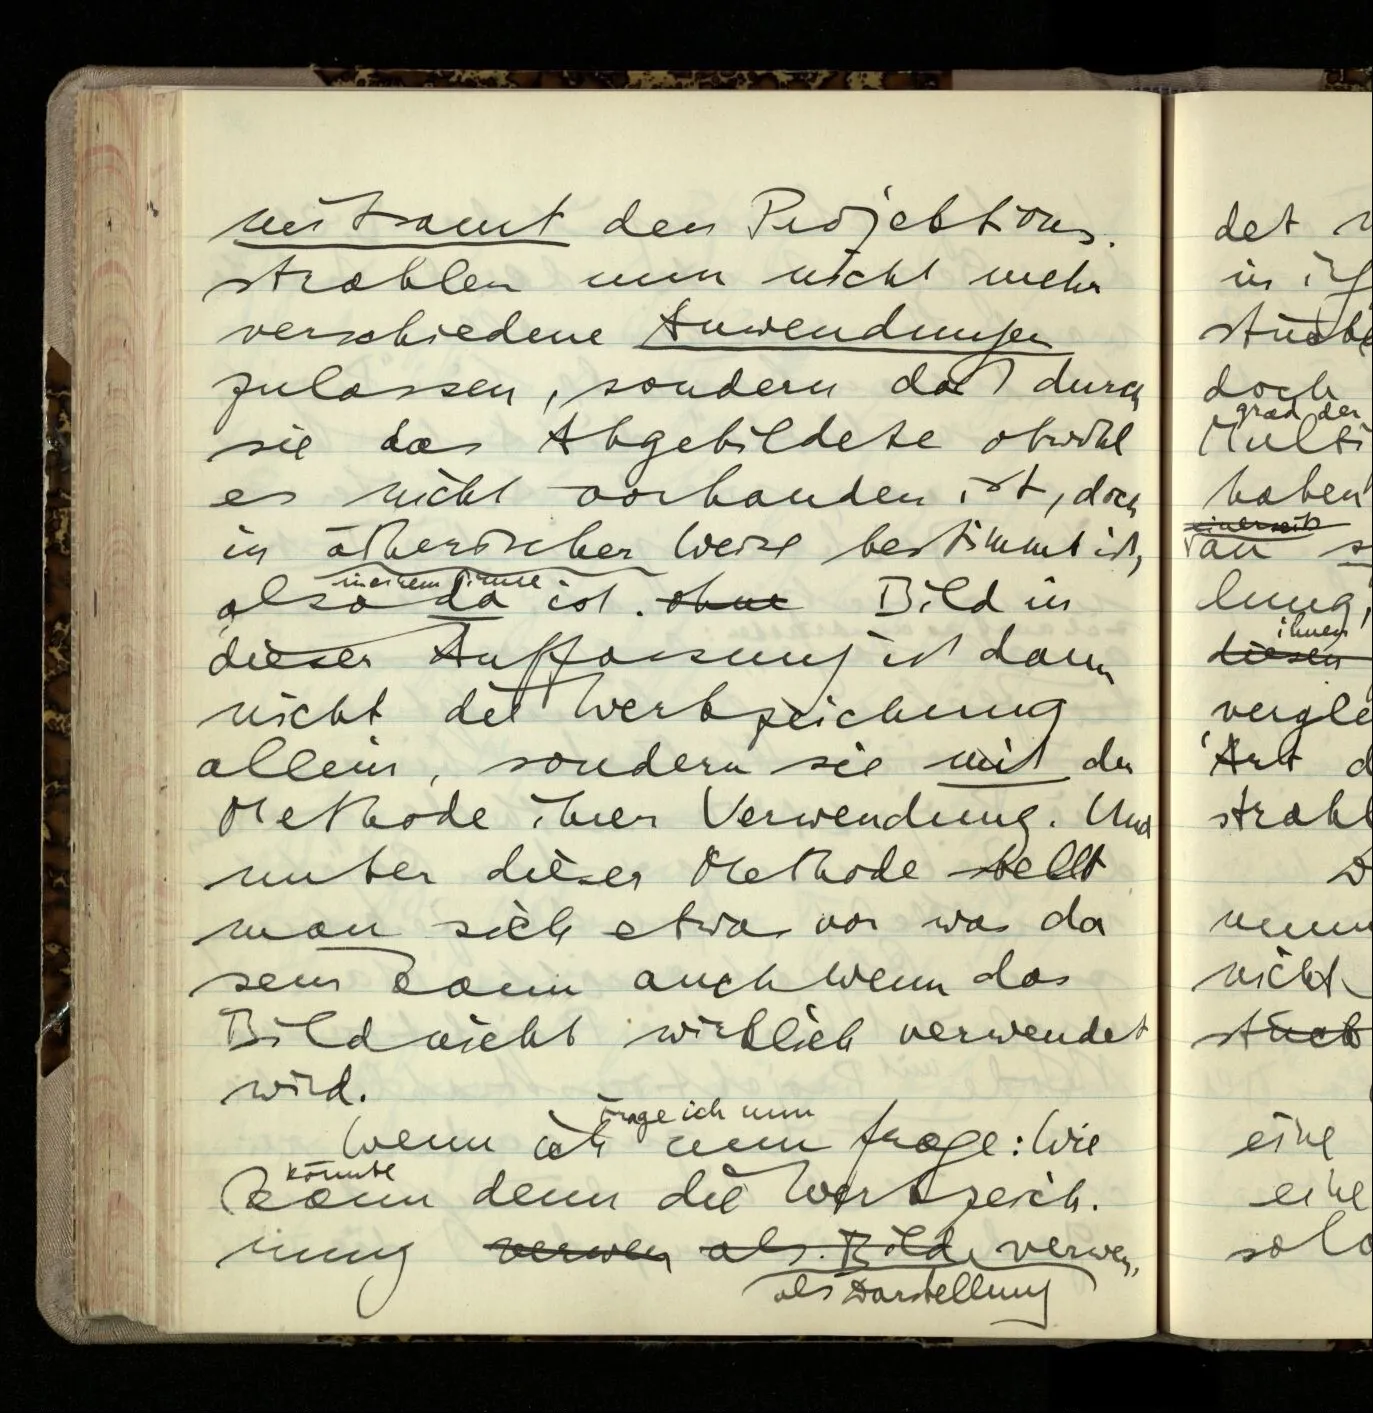 mitsamt den Projektions-
strahlen nun nicht mehr
verschiedene Anwendungen
zulassen, sondern daß durch
sie das Abgebildete obwohl
es nicht vorhanden ist, doch
in ätherischer Weise bestimmt ist,
in einem Sinne
also da ist. ohne Bild in
dieser Auffassung ist dann
nicht die Werkzeichnung
allein, sondern sie mit der
Methode ihrer Verwendung. Und
unter dieser Methode stellt
man sich etwas vor was da
sein kann auch wenn das
Bild nicht wirklich verwendet
wird.
frage ich nun
Wenn ich nun frage: Wie
könnte
kann denn die Werkzeich-
nung verwen als Bild verwen,
als Darstellung
det
in
doch
grad der
Multi
haben
einerseits
lung,
ihnen
diesen
vergle
Art d
strahl
nicht
stück
eine
eine